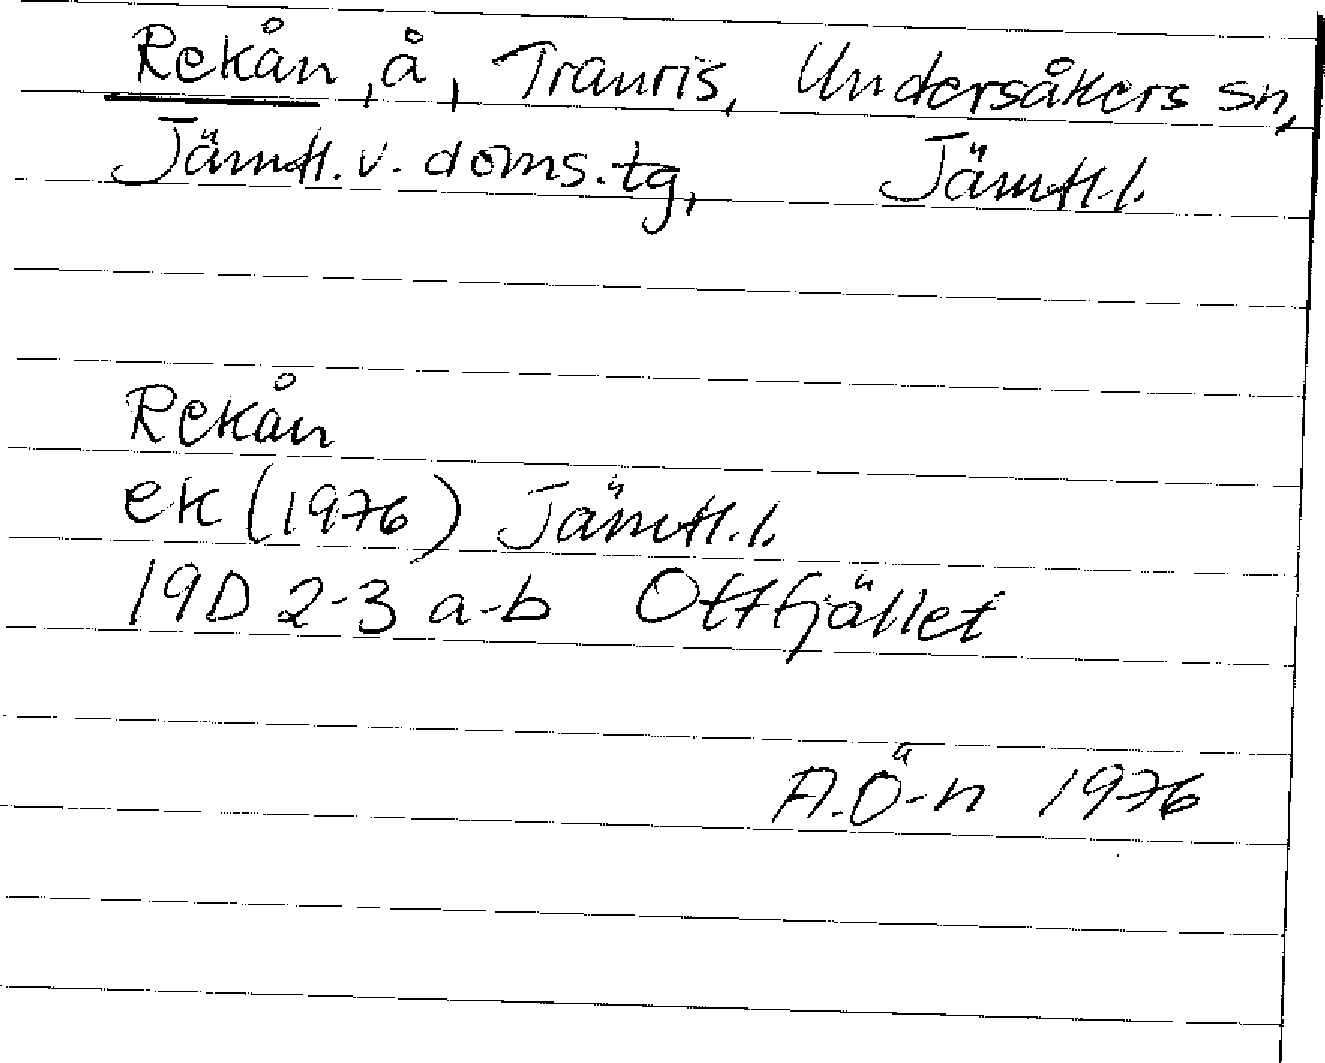 Rekån, å, Tranris, Undersåkers sn,
Jämtl. v. doms.tg, Jämtl.l.
Rekån
ek (1976) Jämtl.l.
19D 2-3 a-b Ottfjället
A.Ö-n 1976